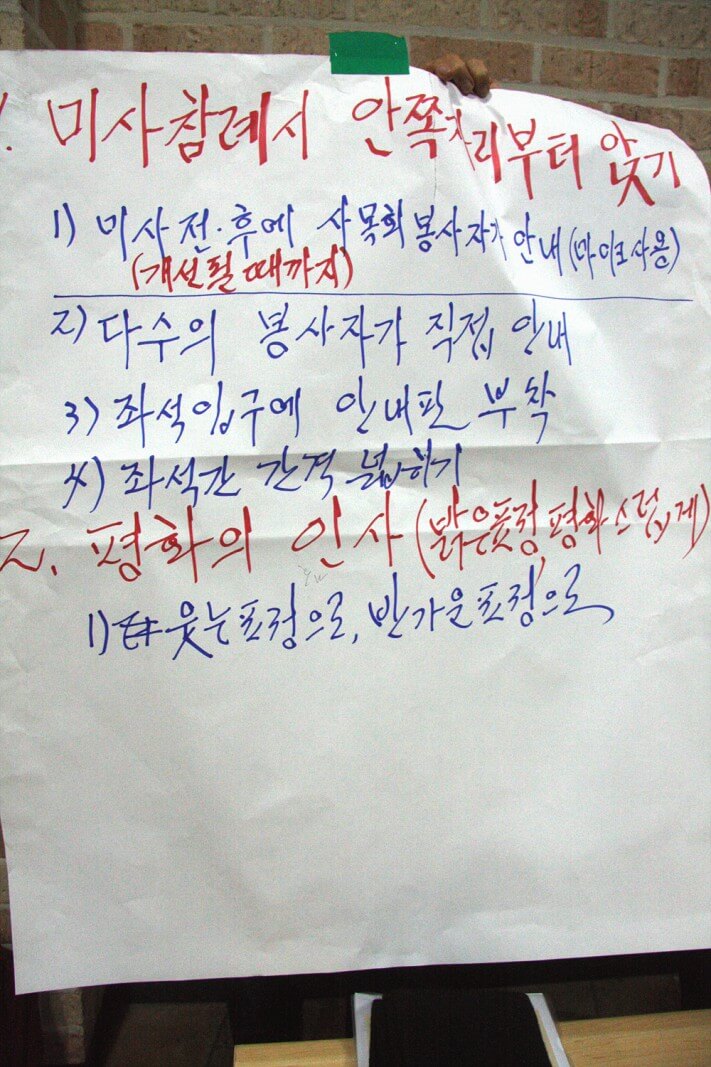 1. 미사참례시 안쪽자리부터 앉기
1) 미사 전·후에 사목회 봉사자가 안내 (마이크사용)
(개선될 때까지)
2) 다수의 봉사자가 직접 안내
3) 좌석입구에 안내판 부착
4) 좌석간 간격 넓히기
2. 평화의 인사 (밝은표정, 평화스럽게)
1) 웃는표정으로, 반가운표정으로